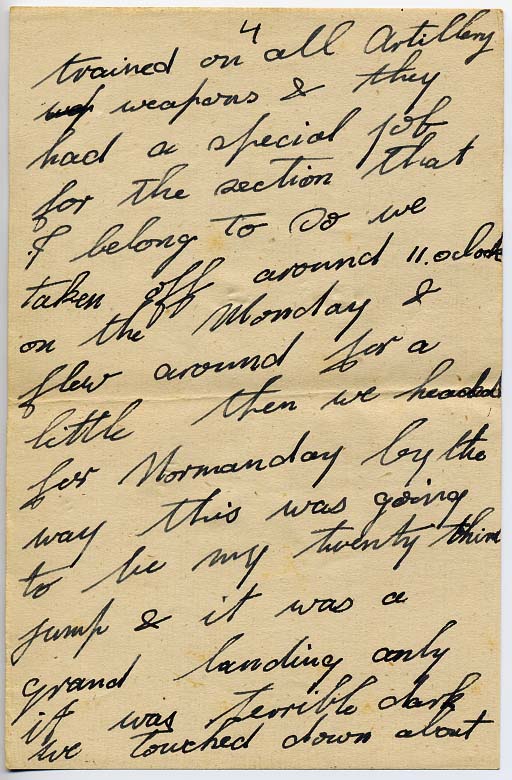 4
trained on all Artillery
weapons & they
had a special job
for the section that
I belong to so we
taken off around 11.oclock
on the Monday &
flew around for a
little then we headed
for Normanday by the
way this was going
to be my twenty third
jump & it was a
grand landing only
it was terrible dark
we touched down about